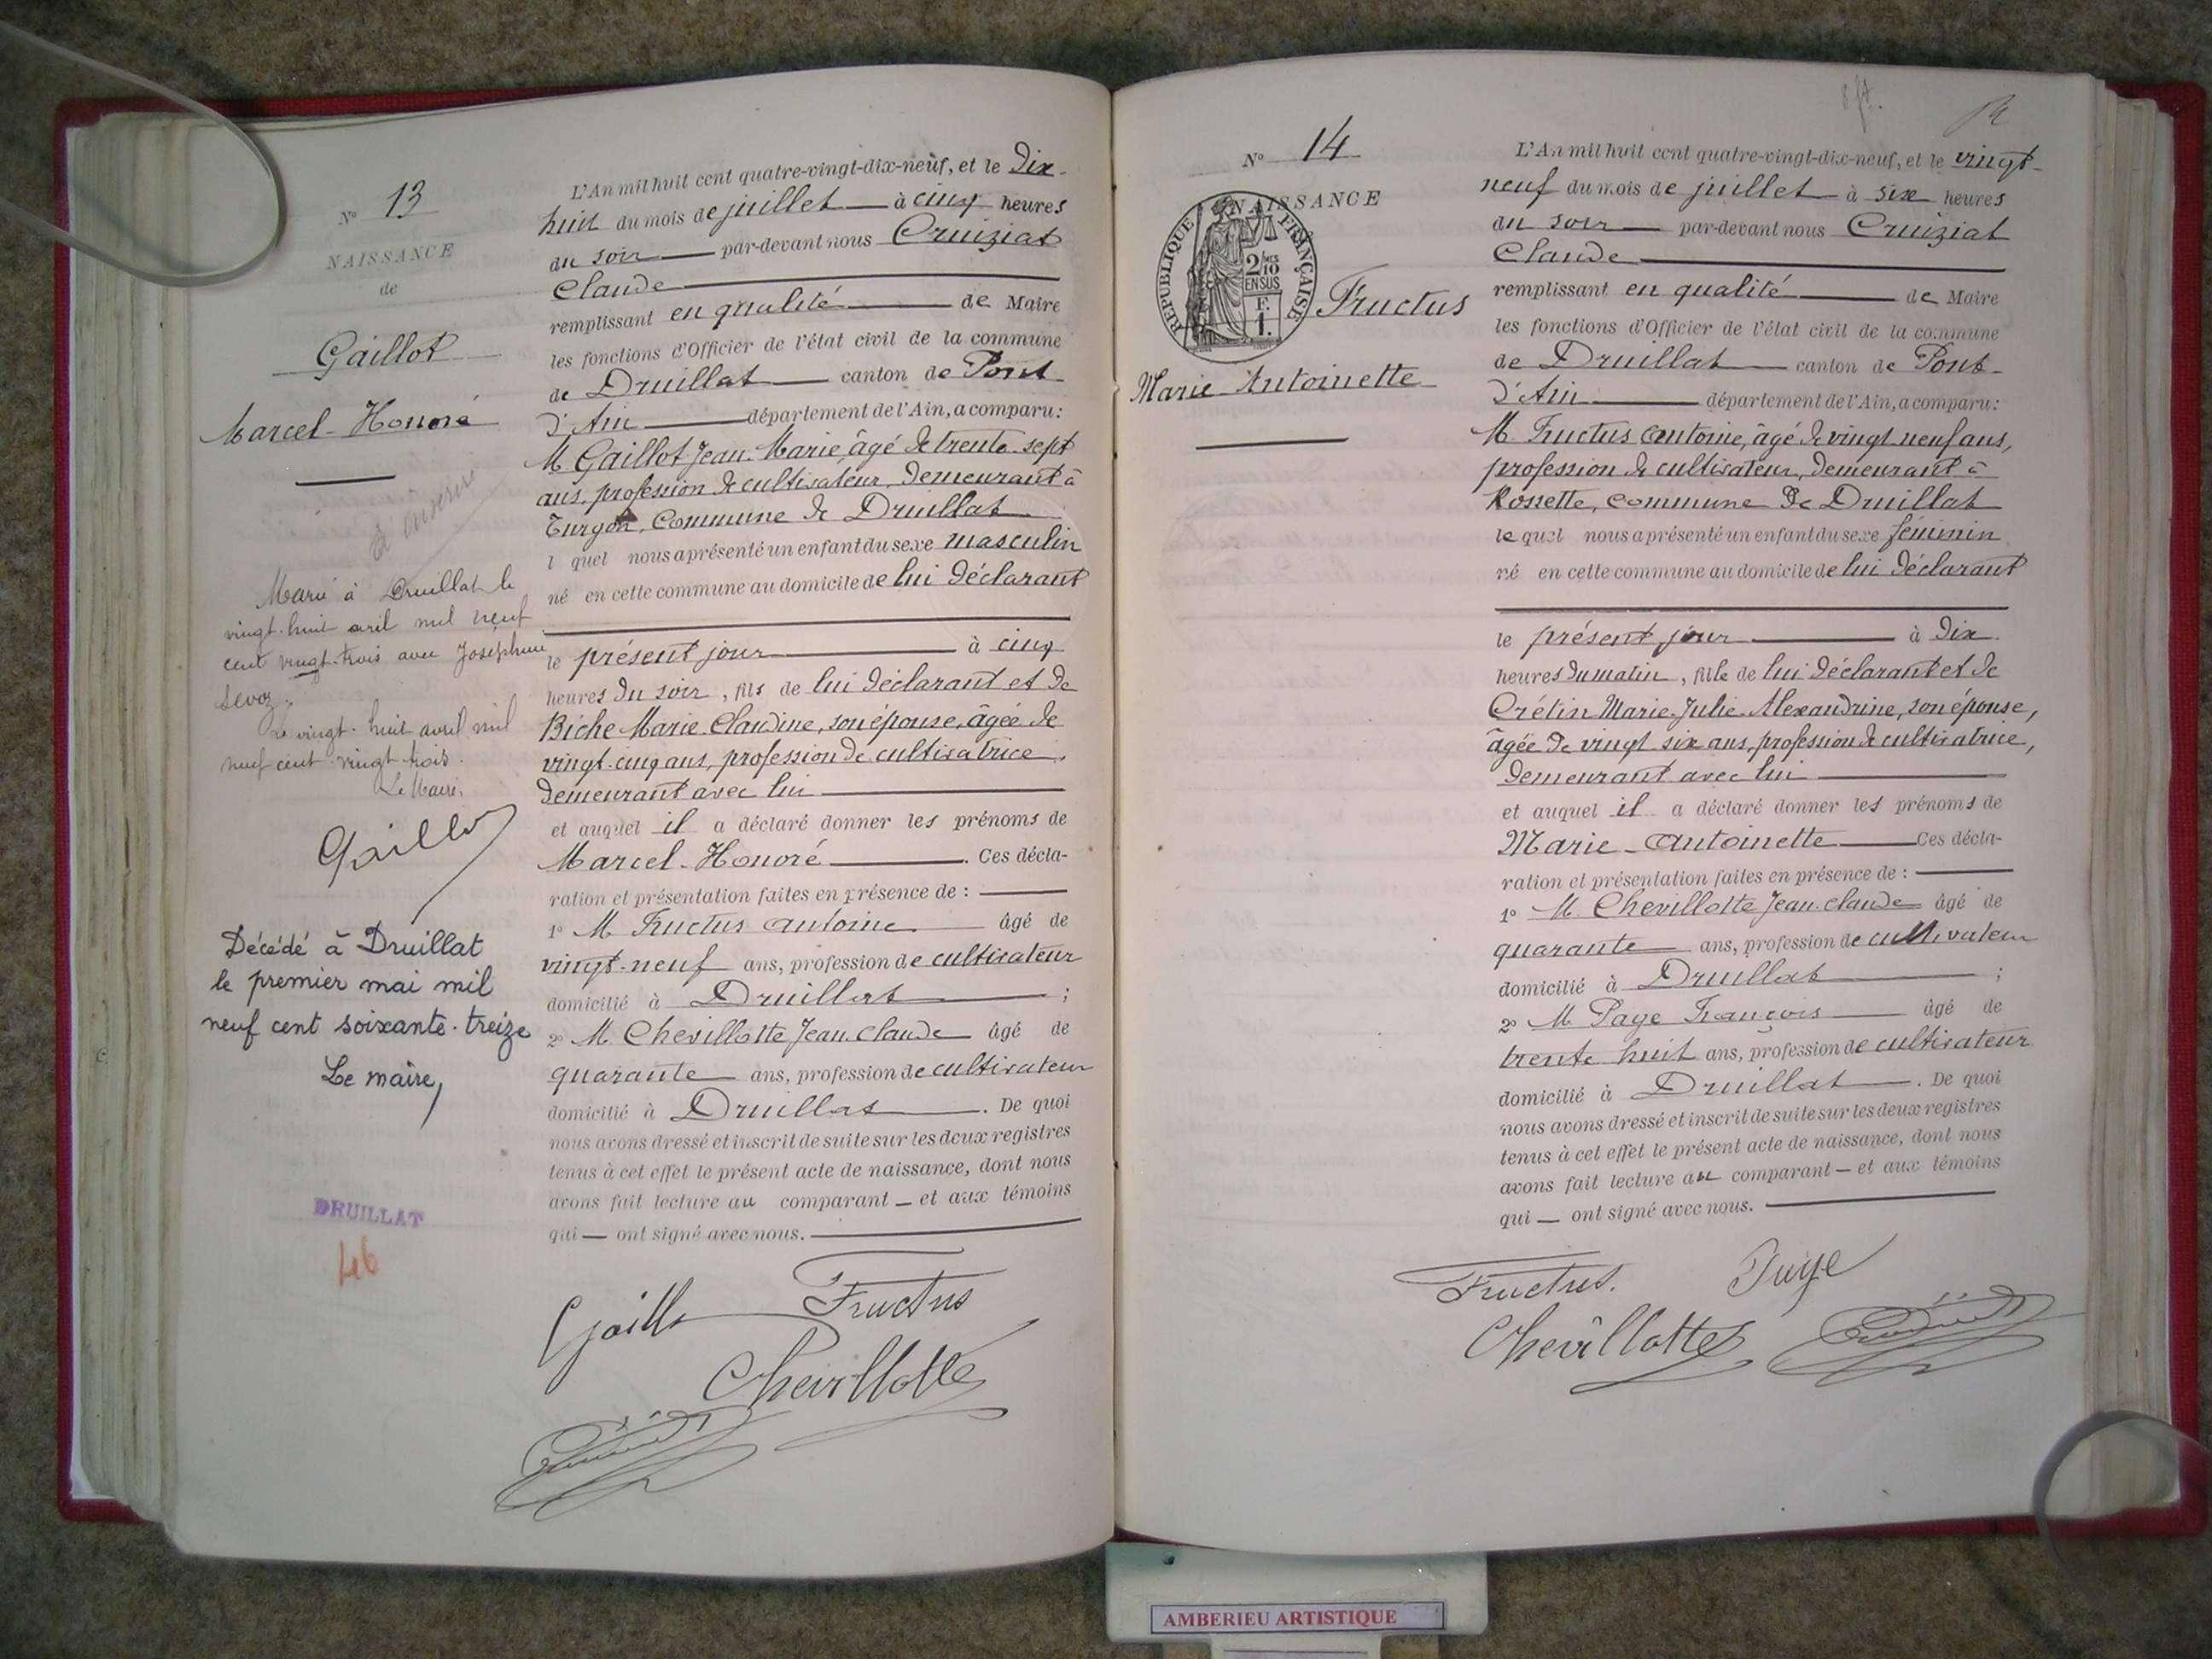 N° 13
NAISSANCE
de
Gaillot
Marcel-Honoré
Marié à Druillat le
vingt-huit avril mil neuf
cent vingt-trois avec Joséphine
Sevoz.
Le vingt-huit avril mil
neuf cent vingt trois.
Le Maire,
Gaillot
Décédé à Druillat
le premier mai mil
neuf cent soixante-treize
Le maire,
DRUILLAT
46
L'An mil huit cent quatre-vingt-dix-neuf, et le dix-
huit du mois de juillet à cinq heures
du soir par-devant nous Cruiziat
Claude
remplissant en qualité de Maire
les fonctions d'Officier de l'état civil de la commune
de Druillat canton de Pont
d'Ain département de l'Ain, a comparu:
M. Gaillot Jean-Marie, âgé de trente-sept
ans, profession de cultivateur, demeurant à
Turgon, commune de Druillat
l quel nous a présenté un enfant du sexe masculin
né en cette commune au domicile de lui déclarant
le présent jour à cinq
heures du soir, fils de lui déclarant et de
Biche Marie Claudine, son épouse, âgée de
vingt-cinq ans, profession de cultivatrice,
demeurant avec lui
et auquel il a déclaré donner les prénoms de
Marcel-Honoré. Ces décla-
ration et présentation faites en présence de :
1° M Fructus Antoine âgé de
vingt-neuf ans, profession de cultivateur
domicilié à Druillat ;
2° M Chevillotte Jean-Claude âgé de
quarante ans, profession de cultivateur
domicilié à Druillat. De quoi
nous avons dressé et inscrit de suite sur les deux registres
tenus à cet effet le présent acte de naissance, dont nous
avons fait lecture au comparant — et aux témoins
qui — ont signé avec nous.
Gaillot Fructus
Chevillotte
N° 14
NAISSANCE
RÉPUBLIQUE FRANÇAISE
2/10
EN SUS
F.
1.
Fructus
Marie-Antoinette
L'An mil huit cent quatre-vingt-dix-neuf, et le vingt-
neuf du mois de juillet à six heures
du soir par-devant nous Cruiziat
Claude
remplissant en qualité de Maire
les fonctions d'Officier de l'état civil de la commune
de Druillat canton de Pont-
d'Ain département de l'Ain, a comparu:
M. Fructus Antoine, âgé de vingt neuf ans,
profession de cultivateur, demeurant à
Rossette, commune de Druillat
le quel nous a présenté un enfant du sexe féminin
né en cette commune au domicile de lui déclarant
le présent jour à dix
heures du matin, fille de lui déclarant et de
Crétin Marie-Julie-Alexandrine, son épouse,
âgée de vingt six ans, profession de cultivatrice,
demeurant avec lui
et auquel il a déclaré donner les prénoms de
Marie-Antoinette Ces décla-
ration et présentation faites en présence de :
1° M. Chevillotte Jean-Claude âgé de
quarante ans, profession de cultivateur
domicilié à Druillat ;
2° M Page François âgé de
trente huit ans, profession de cultivateur
domicilié à Druillat. De quoi
nous avons dressé et inscrit de suite sur les deux registres
tenus à cet effet le présent acte de naissance, dont nous
avons fait lecture au comparant — et aux témoins
qui — ont signé avec nous.
Fructus. Page
Chevillotte
AMBERIEU ARTISTIQUE